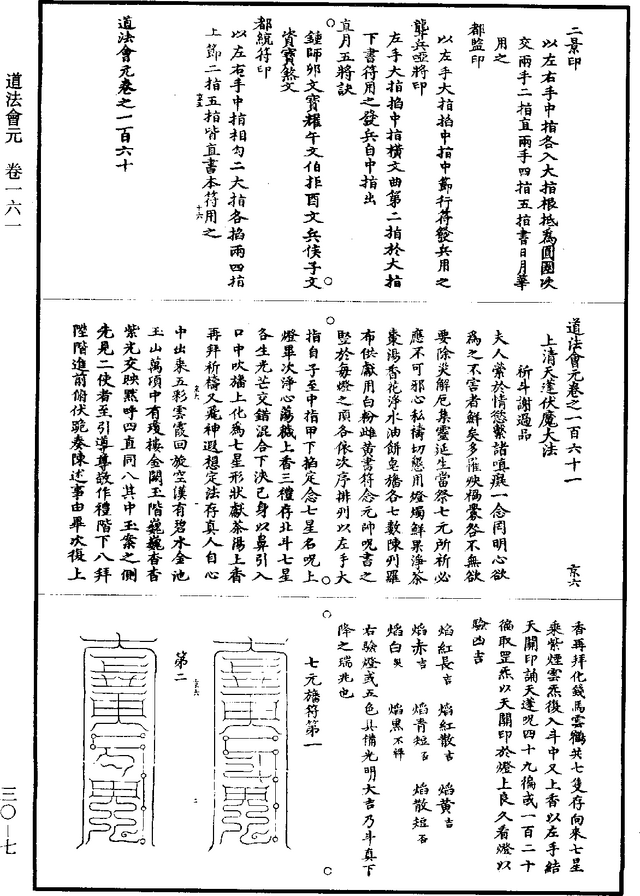 道法會元 卷一六一
三〇—七
二景印
以左右手中指各入大指根抵為圓圈次
交兩手二指直兩手四指五指書日月華
用之
都監印
以左手大指掐中指中節行符發兵用之
聾兵啞將印
左手大指掐中指橫文曲第二指於大指
下書符用之發兵自中指出
直月五將訣
鍾師卯文寶耀午文伯拒酉文兵侠子文
賞寶煞文
都統符印
以左右手中指相勾二大指各掐兩四指
上節二指五指皆直書本符用之
道法會元卷之一百六十
道法會元卷之一百六十一
京六
上清天蓬伏魔大法
祈斗謝過品
夫人縈於情慾繫諸嗔癡一念罔明心欲
為之不害者鮮矣多罹殃禍釁咎不無欲
要除災解厄集靈延生當祭七元所祈必
應不可邪心私禱切懇用燈燭鮮果淨茶
棗湯香花淨水油餅皂旛各七數陳列羅
布供獻用白粉雌黃書符念元帥呪書之
竪於每燈之頂各依次序排列以左手大
指自子至中指甲下掐定念七星名呪上
燈畢次淨心蕩穢上香三禮存北斗七星
各生光芒交錯混合下浹己身以鼻引入
口中吹旛上化為七星形狀獻茶湯上香
再拜祈禱又飛神遐想定法存真人自心
中出乘五彩雲霞回旋空漢有碧水金池
玉山萬項中有瓊樓金闕玉階巍巍杳杳
紫光交映默呼四直同八其中玉案之側
先見二使者至引導尊敬作禮階下八拜
陞階進前俯伏跪奏陳述事由畢次復上
香再拜化錢馬雲鶴共七隻存向來七星
乘紫煙雲炁復入斗中又上香以左手結
天關印誦天蓬呪四十九徧或一百二十
徧取罡炁以天關印於燈上良久看燈以
驗凶吉
焰紅長吉 焰紅散吉 焰黃吉
焰赤吉 焰青短否 焰散短否
焰白哭 焰黑不祥
右驗燈或五色具備光明大吉乃斗真下
降之瑞兆也
七元旛符第一
第二